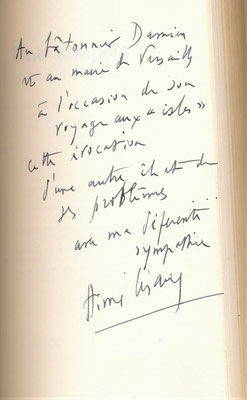 Au bâtonnier Damien
et au maire de Versailles
à l'occasion de son
voyage aux « isles »
cette évocation
d'une autre île et de
ses problèmes
avec ma déférente...
sympathie
Aimé Césaire